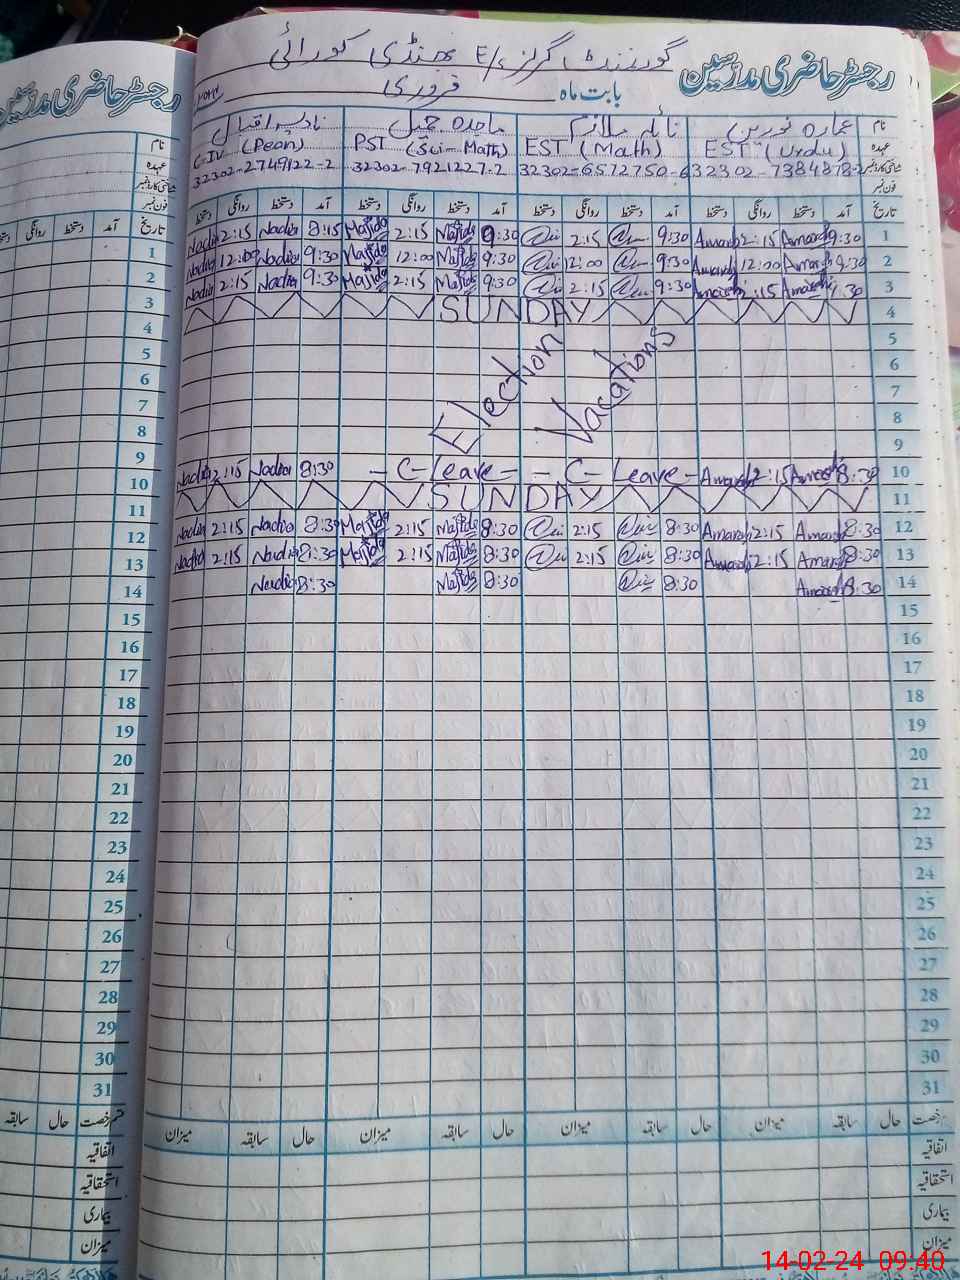 رجسٹر حاضری مدرسین گورنمنٹ گرلز E/S بھنڈی کورائی
رجسٹر حاضری مدرسین
بابت ماہ فروری
نام عمارہ نورین نائلہ ملازم ماجدہ جمیل نادیہ اقبال
عہدہ EST (Urdu) EST (Math) PST (Sci-Math) C-IV (Peon)
شناختی کارڈ نمبر 32302-7384878-2 32302-6572750-6 32302-7921227-2 32302-2749122-2
فون نمبر
تاریخ آمد دستخط روانگی دستخط آمد دستخط روانگی دستخط آمد دستخط روانگی دستخط آمد دستخط روانگی دستخط
1 9:30 Amarah 2:15 Amarah 9:30 2:15 9:30 Majida 2:15 Majida 8:45 Nadia 2:15 Nadia
2 9:30 Amarah 12:00 Amarah 9:30 12:00 9:30 Majida 12:00 Majida 9:30 Nadia 12:00 Nadia
3 9:30 Amarah 2:15 Amarah 9:30 2:15 9:30 Majida 2:15 Majida 9:30 Nadia 2:15 Nadia
4 SUNDAY
5
6 Election Vacations
7
8
9
10 8:30 Amarah 2:15 Amarah - C-Leave - - C-Leave - 8:30 Nadia 2:15 Nadia
11 SUNDAY
12 8:30 Amarah 2:15 Amarah 8:30 2:15 8:30 Majida 2:15 Majida 8:30 Nadia 2:15 Nadia
13 8:30 Amarah 2:15 Amarah 8:30 2:15 8:30 Majida 2:15 Majida 8:30 Nadia 2:15 Nadia
14 8:30 Amarah 8:30 8:30 Majida 8:30 Nadia
15
16
17
18
19
20
21
22
23
24
25
26
27
28
29
30
31
قسم رخصت حال سابقہ میزان حال سابقہ میزان حال سابقہ میزان حال سابقہ میزان
اتفاقیہ
استحقاقیہ
بیماری
میزان
نام
عہدہ
شناختی کارڈ نمبر
فون نمبر
تاریخ آمد دستخط روانگی دستخط
1
2
3
4
5
6
7
8
9
10
11
12
13
14
15
16
17
18
19
20
21
22
23
24
25
26
27
28
29
30
31
قسم رخصت حال سابقہ
اتفاقیہ
استحقاقیہ
بیماری
میزان
14-02-24 09:40